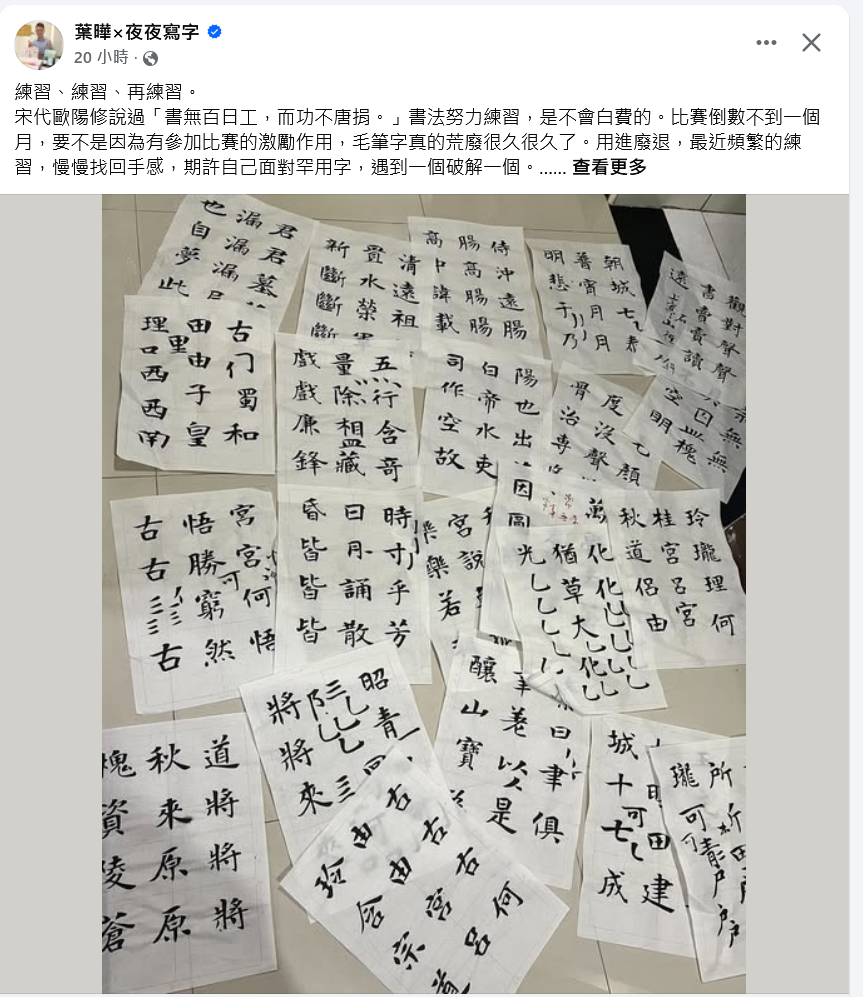 葉曄×夜夜寫字
20 小時
練習、練習、再練習。
宋代歐陽修說過「書無百日工，而功不唐捐。」書法努力練習，是不會白費的。比賽倒數不到一個
月，要不是因為有參加比賽的激勵作用，毛筆字真的荒廢很久很久了。用進廢退，最近頻繁的練
習，慢慢找回手感，期許自己面對罕用字，遇到一個破解一個。...... 查看更多
君君墓
漏漏漏
也自夢此
清遠祖
置水榮
新斷斷斷
侍沖遠腸
腸高腸腸
高中諱載
朝城七
普宵月月
明悲于乃
觀對聲聲
書賣賣讀
遠
古门蜀和
田由子皇
里
理口西西南
五行含奇
量除相藏
戲戲廉鋒
陽也出
白帝水吏
司作空故
度沒聲
骨治專
顏
無無
因
空明槐
宮宮何悟
悟勝窮然
可
古古古
時寸乎芳
日月誦散
昏皆皆皆
宮說
樂樂若
因圖
萬
化化大化
猶草
光
玲瓏理何
桂宮呂宮
秋道侶由
昭青
三三
將將來
釀山寶
美以是
日聿俱
道將將將
秋來原原
槐資陵蒼
古古古何
由由宮呂
玲含宗
城十七成
可
田建
所析
瓏可可
青戶戶